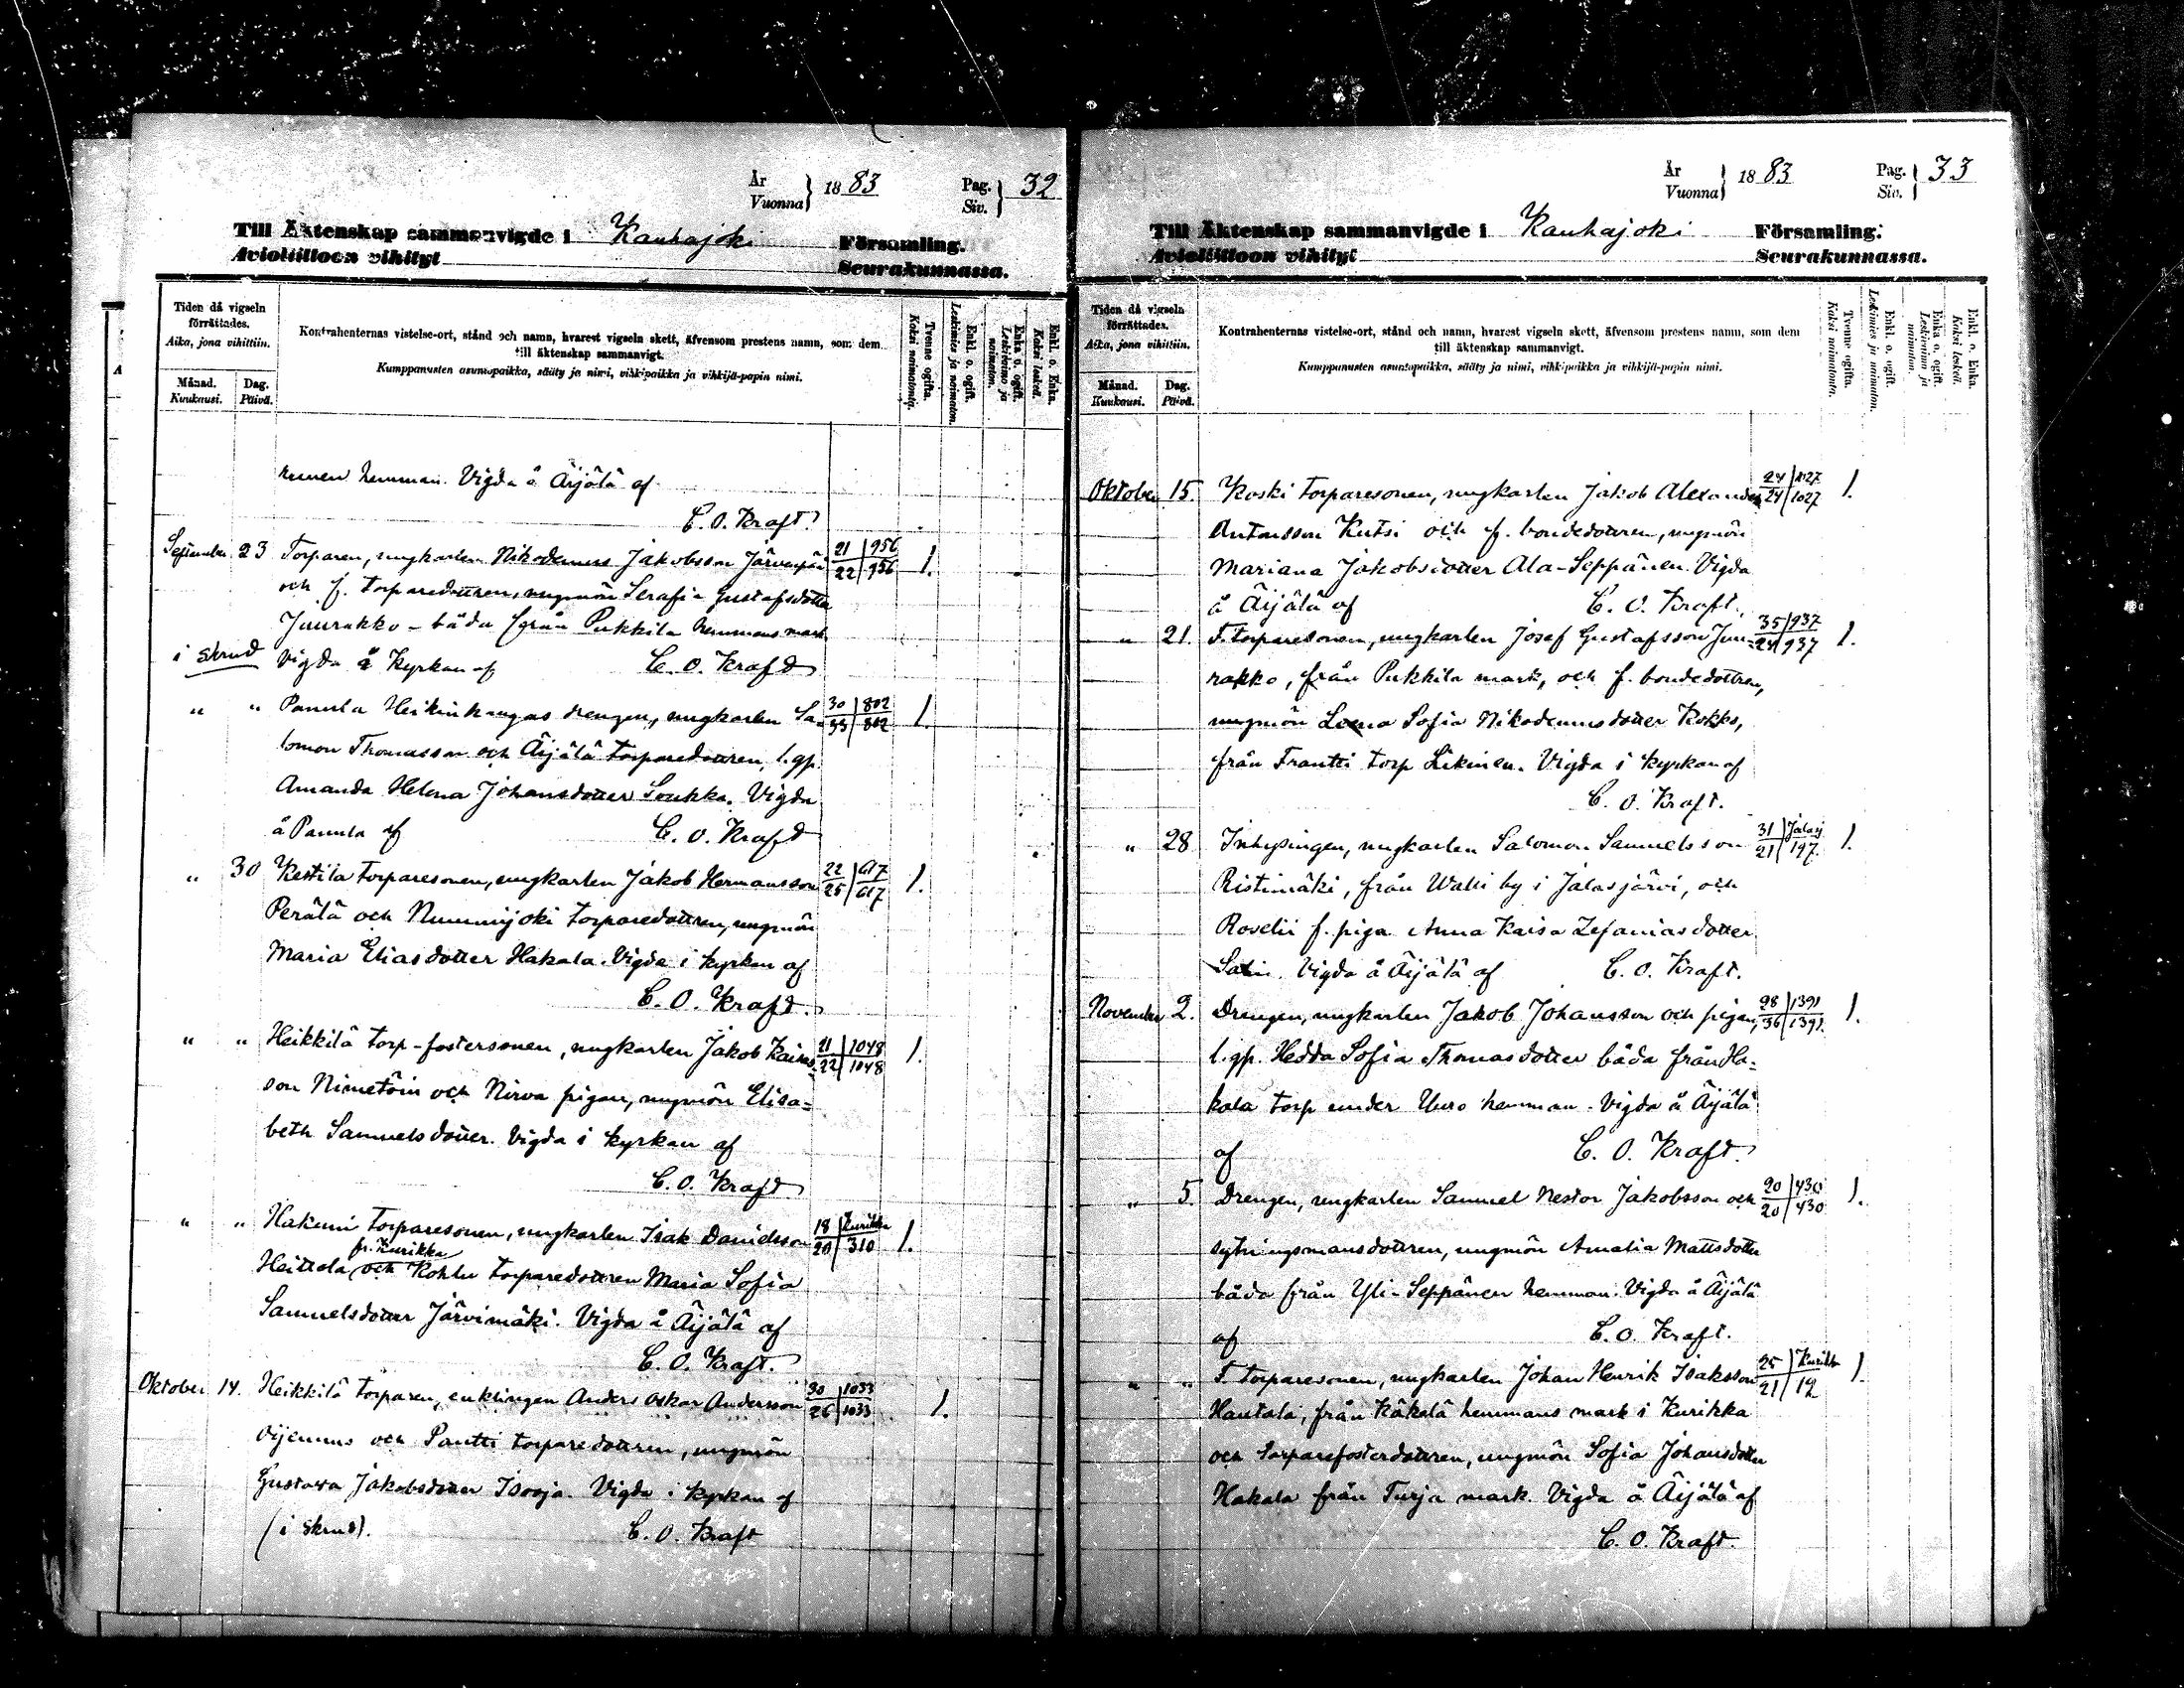 År
Vuonna } 1883 Pag.
Siv. } 32
Till Äktenskap sammanvigde i Kauhajoki Församling.
Avioliittoon vihityt Seurakunnassa.
Tiden då vigseln förrättades.
Aika, jona vihittiin.
Månad.
Kuukausi.
Dag.
Päivä.
Kontrahenternas vistelse-ort, stånd och namn, hvarest vigseln skett, äfvensom prestens namn, som dem
till äktenskap sammanvigt.
Kumppanusten asuntopaikka, sääty ja nimi, vihkipaikka ja vihkijä-papin nimi.
Tvenne ogifta.
Kaksi naimatonta.
Enkl. o. ogift.
Leskimies ja naimaton.
Enka o. ogift.
Leskivaimo ja naimaton.
Enkl. o. Enka.
Kaksi leskeä.
hemman. Vigda å Äijälä af
C. O. Kraft.
September 23 Torparen, ungkarlen Nikodemus Jakobsson Järvenpää 21/22 956/956 1.
och f. torparedottren, ungmön Serafia Gustafsdotter
Juurakko - båda från Pukkila hemmans mark
i skrud Vigda å Kyrkan af C. O. Kraft
" " Panula Heikinkangas drengen, ungkarlen Sa- 30/33 802/802 1.
lomon Thomasson och Äijälä torparedottren, l.qp.
Amanda Helena Johansdotter Luukka. Vigda
å Panula af C. O. Kraft
" 30 Kettila torparesonen, ungkarlen Jakob Hermansson 22/25 617/617 1.
Perälä och Nummijoki torparedottren, ungmön
Maria Eliasdotter Hakala. Vigda i kyrkan af
C. O. Kraft.
" " Heikkilä torp-fostersonen, ungkarlen Jakob Kais- 21/22 1048/1048 1.
son Nimetöin och Nirva pigan, ungmön Elisa-
beth Samuelsdotter. Vigda i kyrkan af
C. O. Kraft
" " Hakuni torparesonen, ungkarlen Isak Davidsson 18/20 Kurikka/310 1.
fr. Kurikka
Heittola och Kohlu torparedottren Maria Sofia
Samuelsdotter Järvimäki. Vigda å Äijälä af
C. O. Kraft.
Oktober 14. Heikkilä torparen, enklingen Anders Oskar Andersson 30/26 1033/1033 1.
och Pantti torparedottren, ungmön
Gustava Jakobsdotter Isooja. Vigda i kyrkan af
(i skrud). C. O. Kraft
År
Vuonna } 1883 Pag.
Siv. } 33
Till Äktenskap sammanvigde i Kauhajoki Församling.
Avioliittoon vihityt Seurakunnassa.
Tiden då vigseln förrättades.
Aika, jona vihittiin.
Månad.
Kuukausi.
Dag.
Päivä.
Kontrahenternas vistelse-ort, stånd och namn, hvarest vigseln skett, äfvensom prestens namn, som dem
till äktenskap sammanvigt.
Kumppanusten asuntopaikka, sääty ja nimi, vihkipaikka ja vihkijä-papin nimi.
Tvenne ogifta.
Kaksi naimatonta.
Enkl. o. ogift.
Leskimies ja naimaton.
Enka o. ogift.
Leskivaimo ja naimaton.
Enkl. o. Enka.
Kaksi leskeä.
Oktober 15. Koski torparesonen, ungkarlen Jakob Alexander 24/24 1027/1027 1.
Antonsson Kutsi och f. bondedottren, ungmön
Mariana Jakobsdotter Ala-Seppänen. Vigda
å Äijälä af C. O. Kraft.
" 21. F. torparesonen, ungkarlen Josef Gustafsson Juu- 35/24 937/937 1.
rakko, från Pukkila mark, och f. bondedottren,
ungmön Leena Sofia Nikodemusdotter Kokko,
från Frantti torp Likinen. Vigda i kyrkan af
C. O. Kraft.
" 28 Inhysingen, ungkarlen Salomon Samuelsson 31/21 Jalasj/197. 1.
Ristimäki, från Walli by i Jalasjärvi, och
Roselii f. piga Anna Kaisa Zefaniasdotter
Salin. Vigda å Äijälä af C. O. Kraft.
November 2. Drengen, ungkarlen Jakob Johansson och pigan, 28/36 1391/1391. 1.
l.qp. Hedda Sofia Thomasdotter båda från Ha-
kala torp under Uuro hemman. Vigda å Äijälä
af C. O. Kraft.
" 5. Drengen, ungkarlen Samuel Nestor Jakobsson och 20/20 430/430 1.
sytningsmansdottren, ungmön Amalia Mattsdotter
båda från Yli-Seppänen hemman. Vigda å Äijälä
af C. O. Kraft.
" " F. torparesonen, ungkarlen Johan Henrik Isaksson 25/21 Kurikka/12 1.
Hautala, från Käkelä hemmans mark i Kurikka
och torparefosterdottren, ungmön Sofia Johansdotter
Hakala från Turja mark. Vigda å Äijälä af
C. O. Kraft.